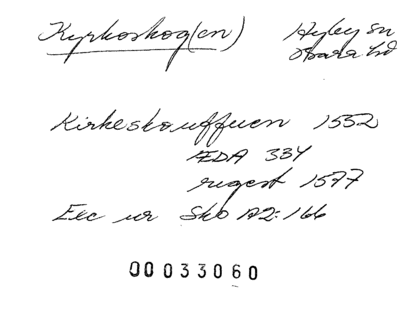 Kyrkoskog(en) Hyby sn
Bara hd
Kirkeskouffuen 1552
ÆDA 334
regest 1577
Exc ur Skb A2:166
00033060